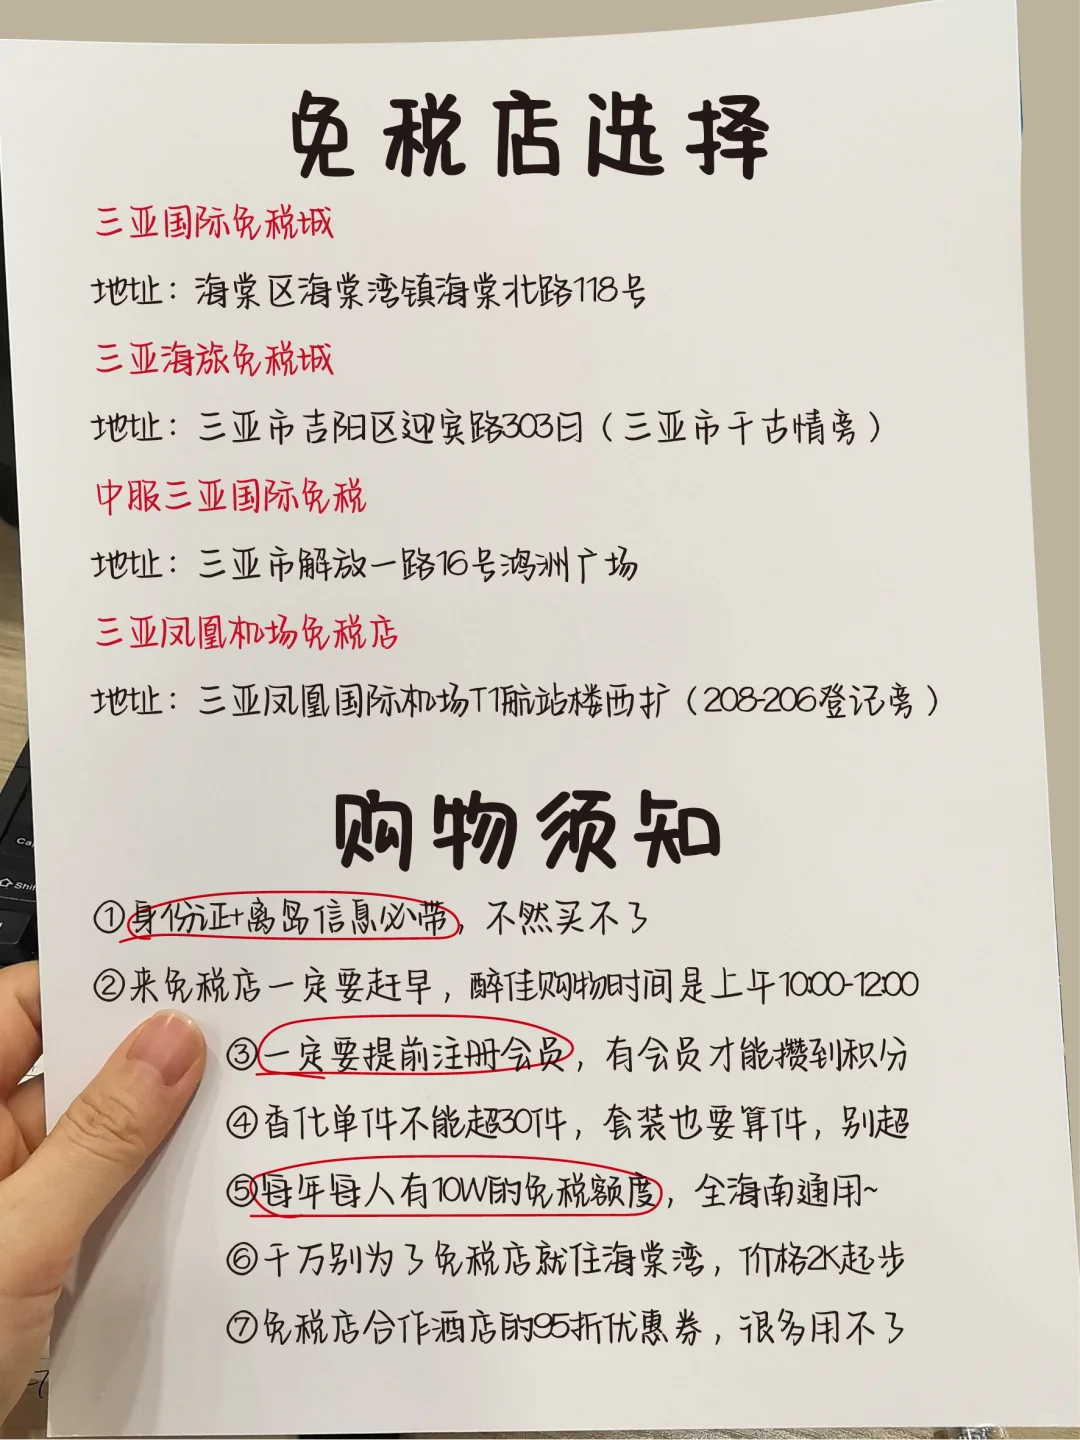 免税店选择
三亚国际免税城
地址：海棠区海棠湾镇海棠北路118号
三亚海旅免税城
地址：三亚市吉阳区迎宾路303日（三亚市千古情旁）
中服三亚国际免税
地址：三亚市解放一路16号鸿洲广场
三亚凤凰机场免税店
地址：三亚凤凰国际机场T1航站楼西扩（208-206登记旁）
购物须知
①身份证+离岛信息必带，不然买不了
②来免税店一定要赶早，醉佳购物时间是上午10:00-12:00
③一定要提前注册会员，有会员才能攒到积分
④香化单件不能超30件，套装也要算件，别超
⑤每年每人有10W的免税额度，全海南通用~
⑥千万别为了免税店就住海棠湾，价格2K起步
⑦免税店合作酒店的95折优惠券，很多用不了